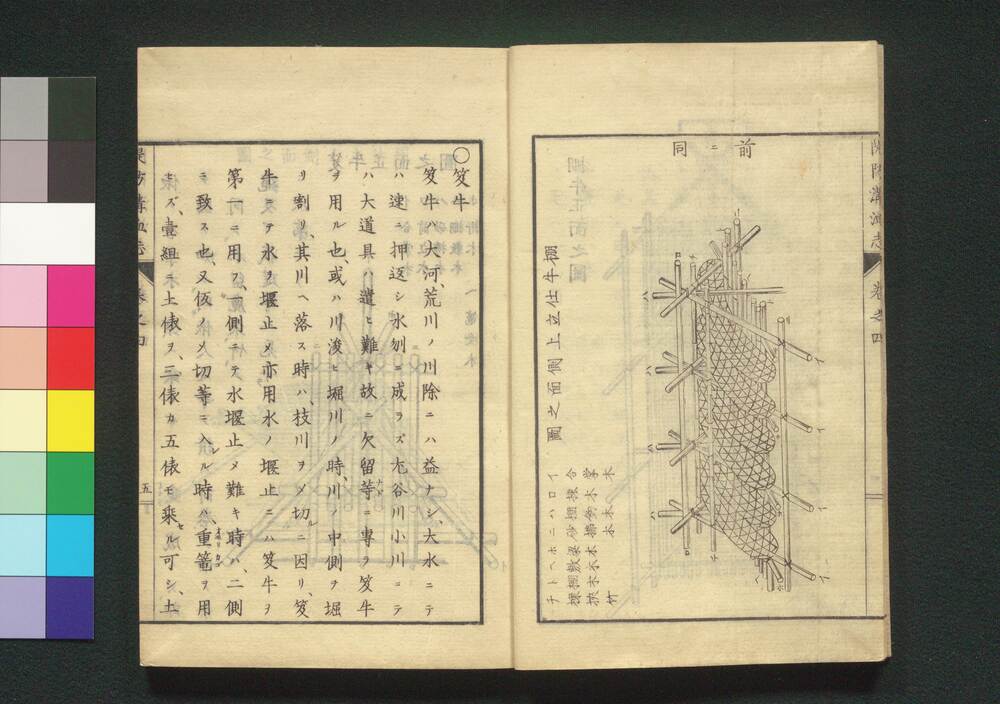 隄防溝洫志 巻之四
前ニ同
棚牛仕立上側面之圖
イ 合掌木
ロ 棟木
ニ 砂拂木
ホ 梁木
ヘ 敷木
ト 棚木
チ 棟挾竹
ハ
イ
〇笈牛
笈牛ハ大河、荒川ノ川除ニハ益ナシ、大水ニテ
ハ速ニ押返シ水刎ニ成ラズ尤谷川小川ニテ
ハ大道具ハ遣ヒ難キ故ニ欠留等ニ專ヲ笈牛
ヲ用ル也、或ハ川浚ヒ堀川ノ時、川ノ中側ヲ堀
リ割リ、其川ヘ落ス時ハ、枝川ヲメ切ルニ因リ、笈
牛ニテ水ヲ堰止メ亦用水ノ堰止ニハ笈牛ヲ
第一ニ用フ、一側ニテ水堰止メ難キ時ハ、二側
ニ致ス也、又仮メ切等ニ入ル時ハ、重籠ヲ用
ヒズ、壹組ニ土俵ヲ、三俵カ五俵モ乘セル可シ、土
隄防溝洫志 巻之四
五